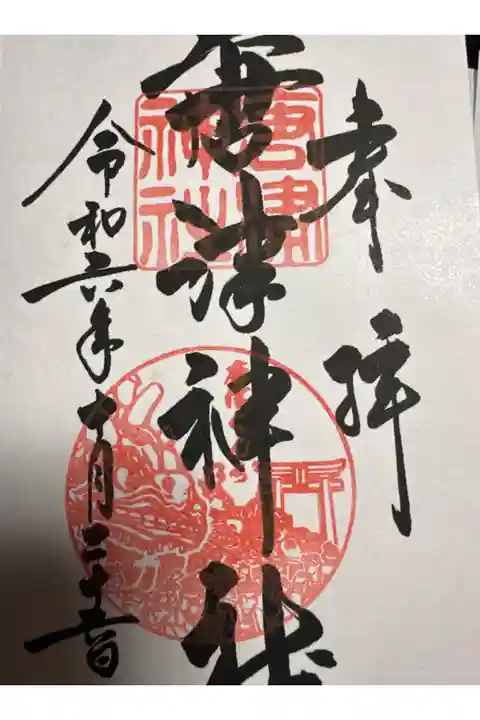 奉拝
唐津神社
唐津
神社
令和六年十月二十